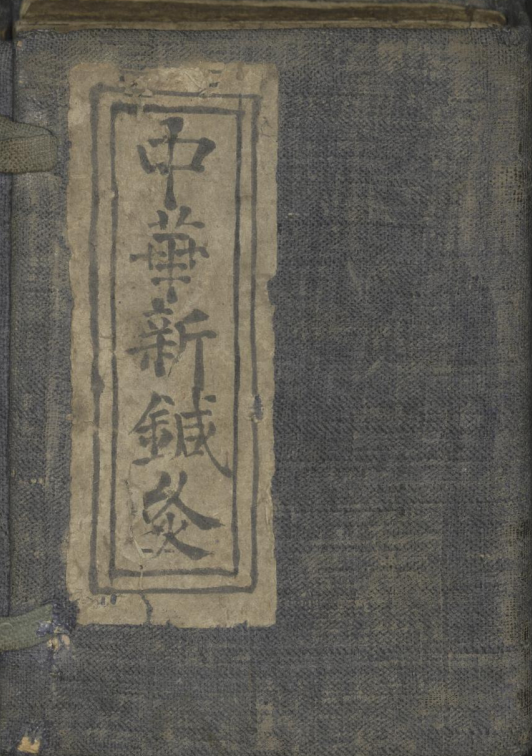 中華新鍼灸